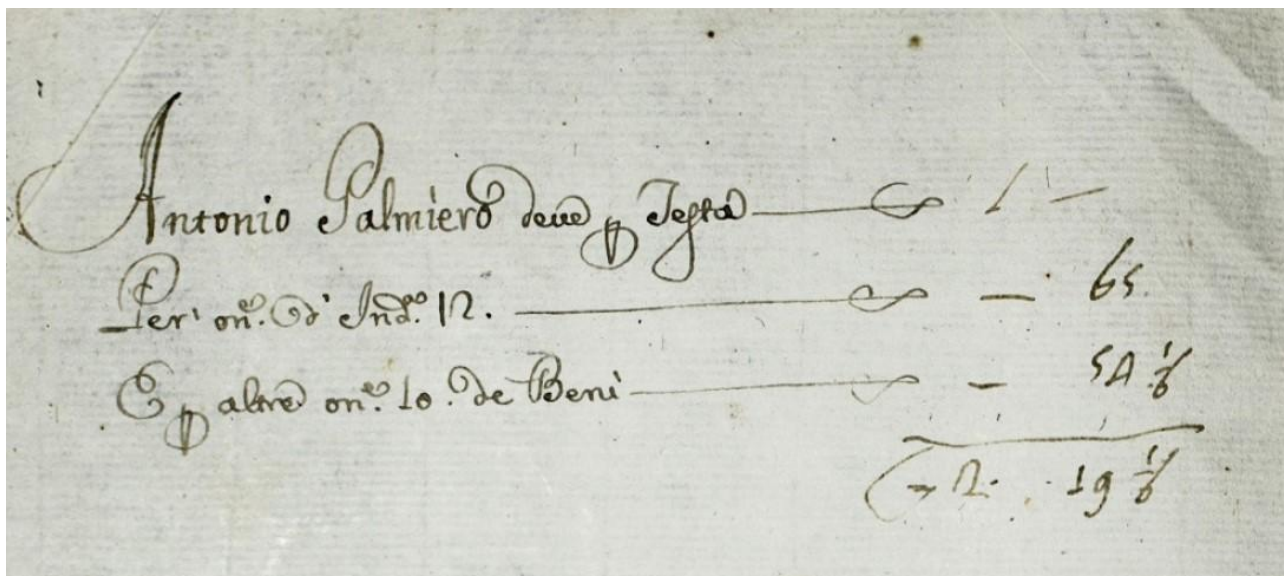 Antonio Palmiero deve p Testa — 1 –
Per on.e d' Ind.e 12. — – 65.
E p altre on.e 10. de Beni — – 54 1/6
– 2. 19 1/6